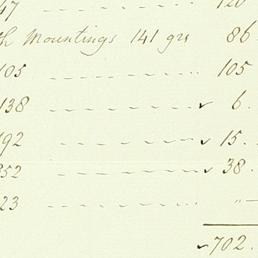 47 120
th Mountings 141 grs 86
105 105
138 ✓ 6.
192 ✓ 15.
352 ✓ 38.
23 "—
✓ 702.